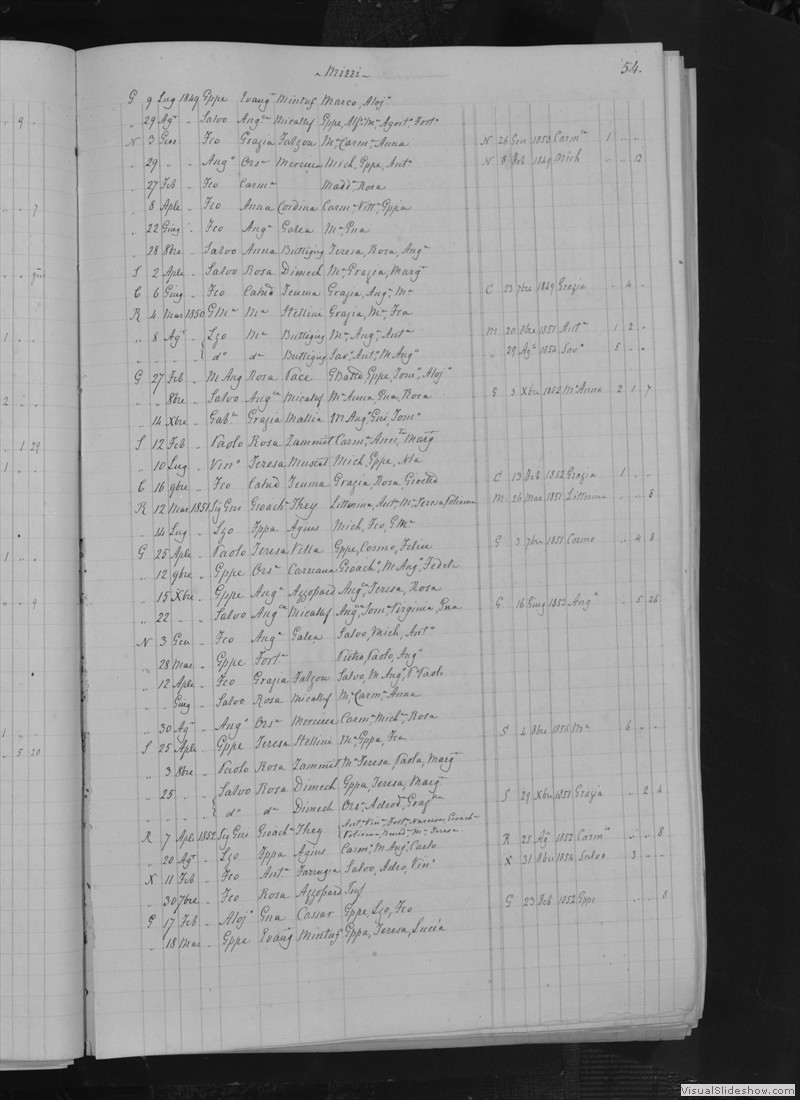 ~Mizzi~ 54.
G 9 Lug 1849 Gppe Evang.a Mintuf Marco, Aloj.o
„ 29 Ag.o „ Salvo Ang.ca Micallef Gppe, Alf.o M.a Agost.o Fort.a
N 3 Gen „ Fco Grazia Falzon M.a Carm.a Anna N 26 Gen 1853 Carm.na 1 „ „
„ 29 „ „ Ang.o Ors.a Mercieca Mich, Gppe, Ant.o N 8 Feb 1849 Mich „ „ 12
„ 27 Feb „ Fco Carm.a Madd.a Rosa
„ 8 Aple „ Fco Anna Cordina Carm.a Vitt.a Gppa
„ 22 Giug „ Fco Ang.a Galea M.a Gna
„ 28 8bre „ Salvo Anna Buttigieg Teresa, Rosa, Ang.a
S 2 Aple „ Salvo Rosa Dimech M.a Grazia, Marg.a
C 6 Giug „ Fco Catnd Teuma Grazia, Ang.a M.a C 23 7bre 1849 Grazia „ 4 „
R 4 Mar 1850 GM.a M.a Stellini Grazia, M.a Fca
„ 8 Ag.o „ Lzo M.a Buttigieg M.a Ang.a Ant.a M 20 8bre 1851 Ant.a 1 2 „
„ „ „ „ d.o d.a Buttigieg Sav.a Ant.a M Ang.a „ 29 Ag.o 1854 Sav.a 5 „ „
G 27 Feb „ M Ang Rosa Pace GBatta, Gppe, Tom.o Aloj.o
„ „ 8bre „ Salvo Ang.ca Micallef M.a Anna, Gna, Rosa G 3 Xbre 1852 M.a Anna 2 1 7
„ 14 Xbre „ Gab.le Grazia Mallia M Ang.o Gni, Tom.o
S 12 Feb „ Paolo Rosa Zammit Carm.a Ann.ta Marg.a
„ 10 Lug „ Vin.o Teresa Muscat Mich, Gppe, Nla
C 16 9bre „ Fco Catnd Teuma Grazia Rosa C 13 Feb 1852 Grazia 1 „ „
R 12 Mar 1851 Sig Gni Gioach.a They Litterina, Ant.a M.a Teresa M 26 Mar 1851 Litterina „ „ 8
„ 14 Lug „ Lzo Gppa Agius Mich, Fco, GM.a
G 25 Aple „ Paolo Teresa Vella Gppe, Cosmo, Felice G 3 7bre 1851 Cosmo „ 4 8
„ 12 9bre „ Gppe Ors.a Caruana Gioach.o M Ang.o Fedele
„ 15 Xbre „ Gppe Ang.a Azzopard Ang.ca Teresa, Rosa
„ 22 „ „ Salvo Ang.ca Micallef Ang.ca Tom.a Virginia, Gna G 16 Giug 1852 Ang.a „ 5 26
N 3 Gen „ Fco Ang.a Galea Salvo, Mich, Ant.o
„ 28 Mar „ Gppe Fort.a Pietro, Paolo, Ang.o
„ 12 Aple „ Fco Grazia Falzon Salvo, M Ang.o P Paolo
„ „ Giug „ Salvo Rosa Micallef M.a Carm.a Anna
„ 30 Ag.o „ Ang.o Ors.a Mercieca Carm.a Mich.a Rosa
S 25 Aple „ Gppe Teresa Stellini M.a Gppa, Fca S 4 8bre 1856 M.a 6 „ „
„ 3 8bre „ Paolo Rosa Zammit M.a Teresa, Paola, Marg.a
„ 25 „ „ Salvo Rosa Dimech Gppa, Teresa, Marg.a
„ „ „ „ d.o d.a Dimech Ors.a Adeod.a Graz.a S 29 Xbre 1851 Grazia „ 2 4
R 7 Aple 1852 Sig Gni Gioach.a They Ant.o Vin.o Fort.o
„ 20 Ag.o „ Lzo Gppa Agius Carm.o M Ang.o Carlo R 25 Ag.o 1852 Carm.o „ „ 8
N 11 Feb „ Fco Ant.a Farrugia Salvo, Adeo, Vin.o X 31 8bre 1854 Salvo 3 „ „
„ 30 7bre „ Fco Rosa Azzopard Inf
G 17 Feb „ Aloj.o Gna Cassar Gppe, Lzo, Fco G 23 Feb 1852 Gppe „ „ 8
„ 18 Mar „ Gppe Evang.a Mintuf Gppa, Teresa, Lucia
VisualSlideshow.com